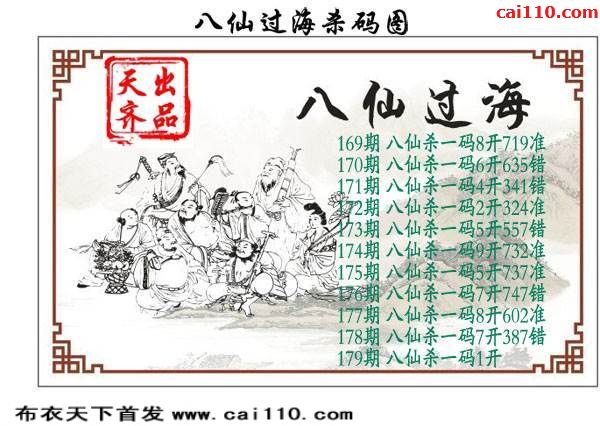 cai110.com
八仙过海杀码图
天齐
出品
八仙过海
169期 八仙杀一码8开719准
170期 八仙杀一码6开635错
171期 八仙杀一码4开341错
172期 八仙杀一码2开324准
173期 八仙杀一码5开557错
174期 八仙杀一码9开732准
175期 八仙杀一码5开737准
176期 八仙杀一码7开747错
177期 八仙杀一码8开602准
178期 八仙杀一码7开387错
179期 八仙杀一码1开
布衣天下首发 www.cai110.com